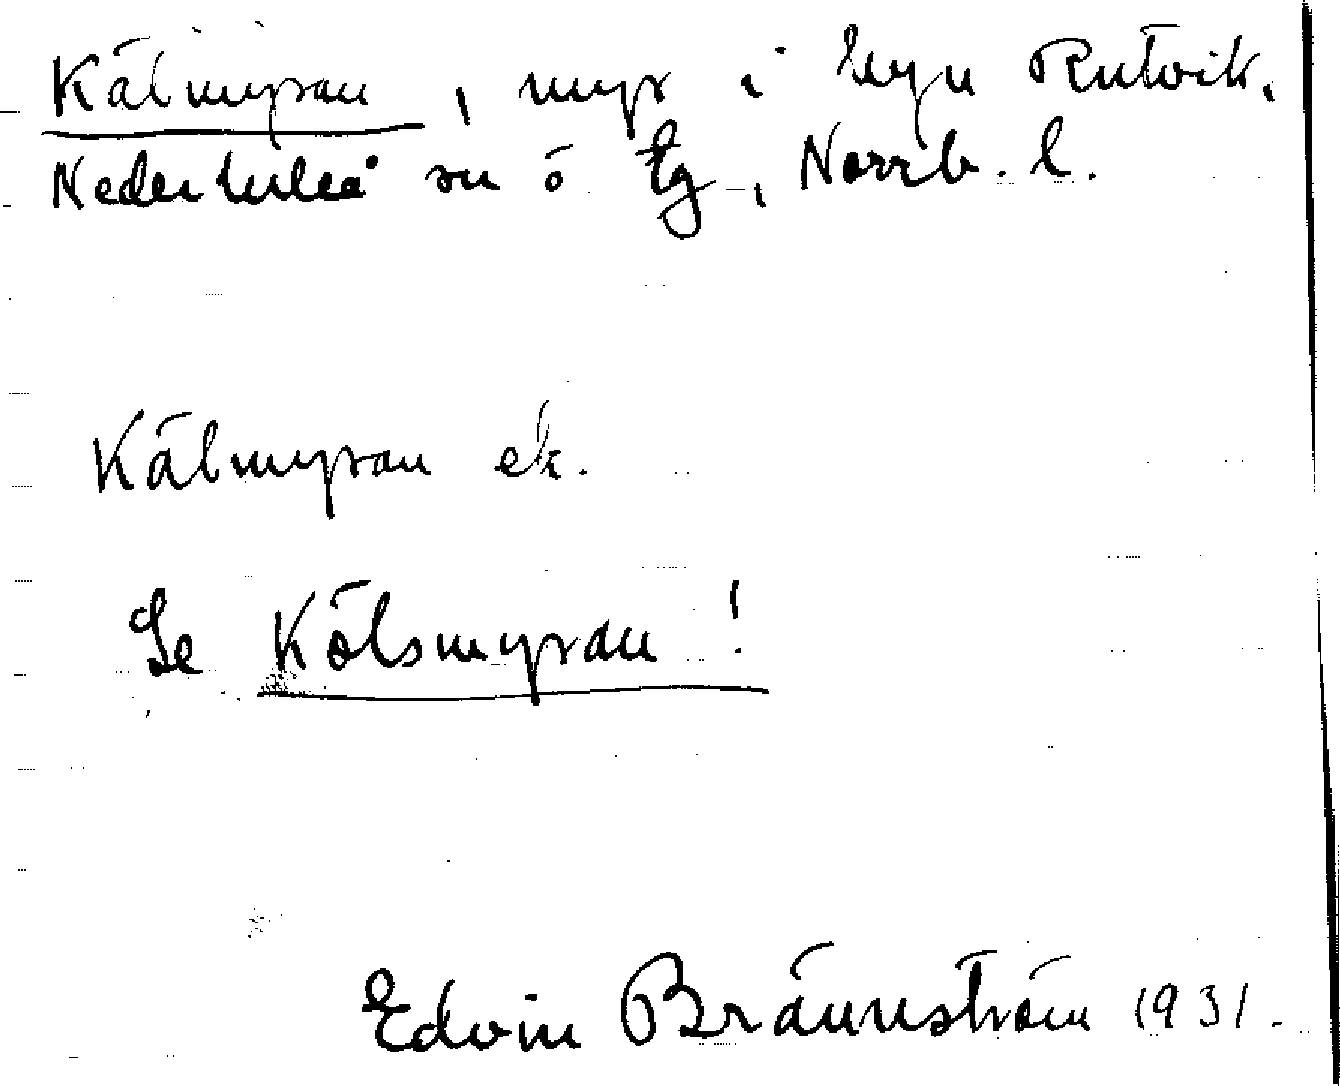 Kälmyran, myr i byn Rutvik,
Nederluleå sn o tg, Norrb. l.
Kälmyran ek.
Se Kölsmyran!
Edvin Brännström 1931.